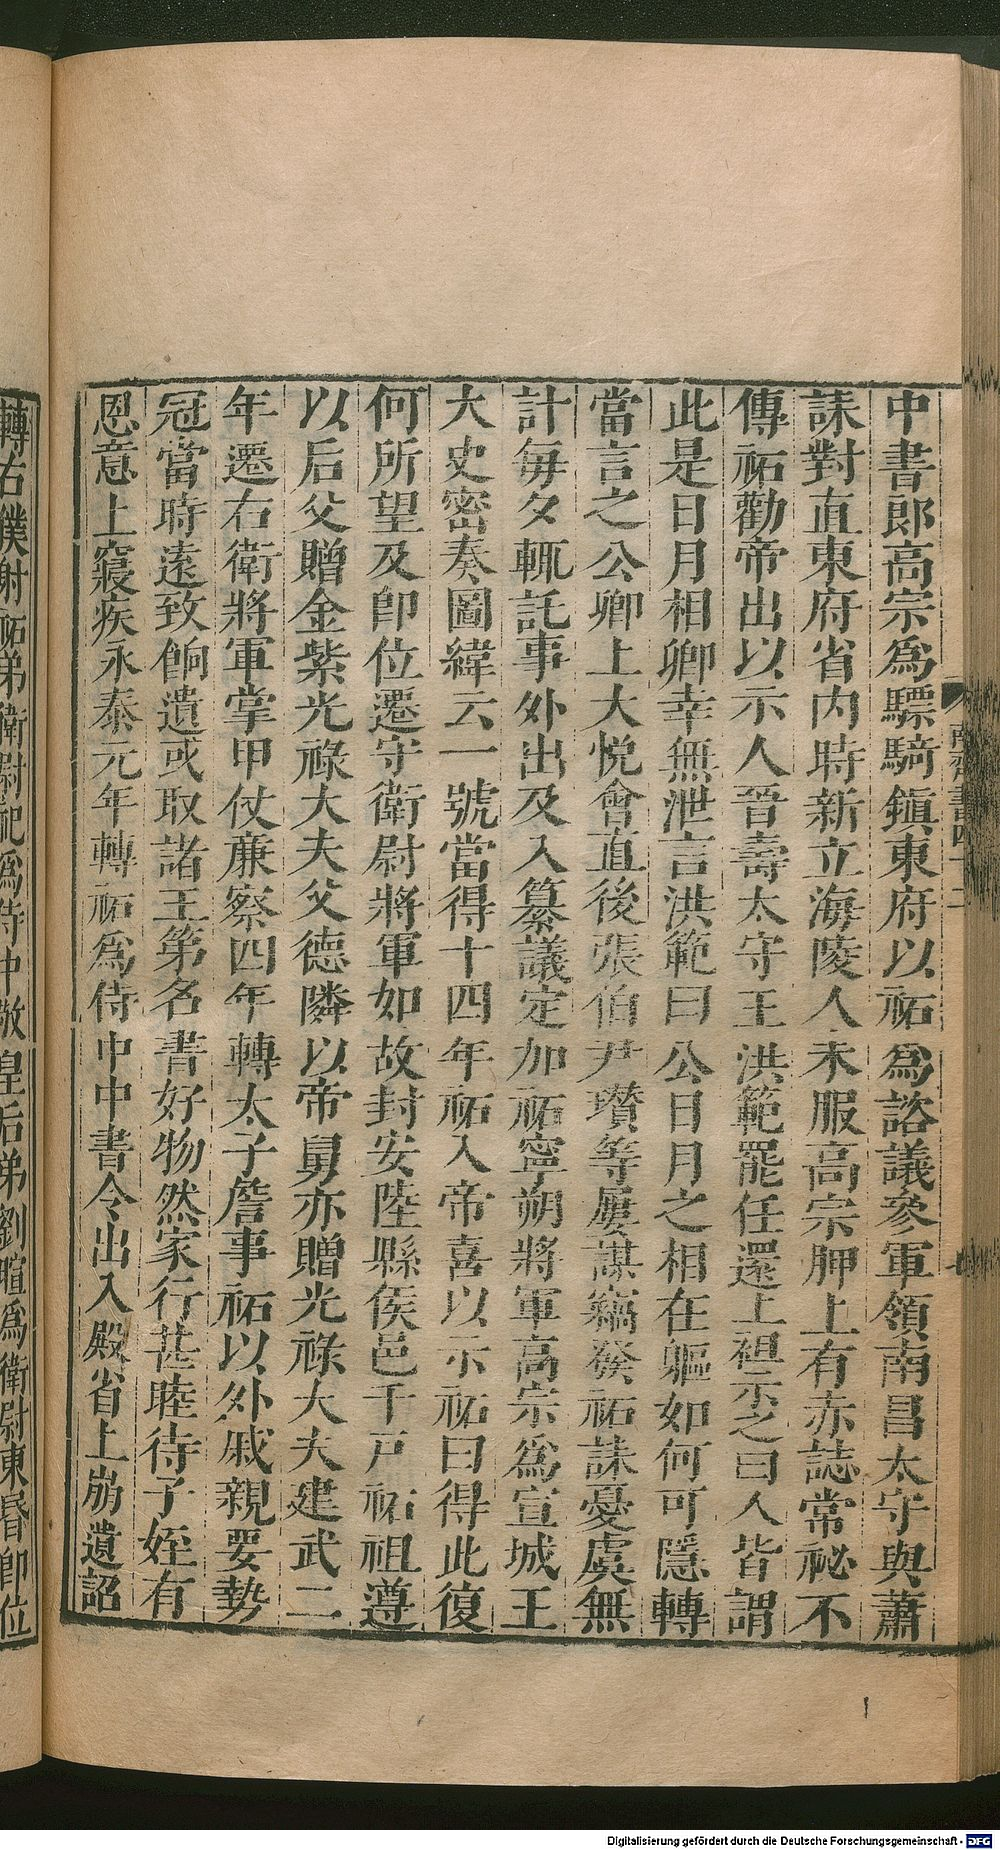 中書郎高宗爲驃騎鎭東府以祏爲諮議參軍領南昌太守與蕭
誄對直東府省内時新立海陵人未服高宗胛上有赤誌常祕不
傳祏勸帝出以示人晉壽太守王洪範罷任還上袒示之曰人皆謂
此是日月相卿幸無泄言洪範曰公日月之相在軀如何可隱轉
當言之公卿上大悅會直後張伯尹瓚等屢謀竊發祏誄憂虞無
計每夕輒託事外出及入纂議定加祏寧朔將軍高宗爲宣城王
大史密奏圖緯云一號當得十四年祏入帝喜以示祏曰得此復
何所望及卽位遷守衛尉將軍如故封安陸縣侯邑千戸祏祖遵
以后父贈金紫光祿大夫父德隣以帝舅亦贈光祿大夫建武二
年遷右衛將軍掌甲仗廉察四年轉太子詹事祏以外戚親要勢
冠當時遠致餉遺或取諸王第名書好物然家行甚睦待子姪有
恩意上寢疾永泰元年轉祏爲侍中中書令出入殿省上崩遺詔
轉右僕射祏弟衛尉祀爲侍中敬皇后弟劉暄爲衛尉東昏卽位
南齊書四十二
Digitalisierung gefördert durch die Deutsche Forschungsgemeinschaft - DFG